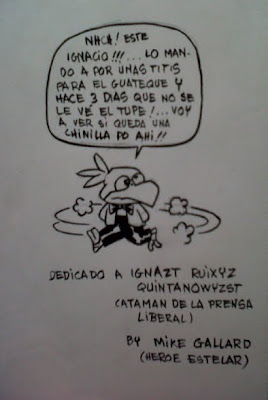 ¡NHCA! ESTE
IGNACIO!!!... LO MAN-
DO A POR UNAS TITIS
PARA EL GUATEQUE Y
HACE 3 DIAS QUE NO SE
LE VÉ EL TUPE!... VOY
A VER SI QUEDA UNA
CHINILLA PO AHI!!
DEDICADO A IGNAZT RUIXYZ
QUINTANOWYZST
(ATAMAN DE LA PRENSA
LIBERAL)
BY MIKE GALLARD
(HEROE ESTELAR)